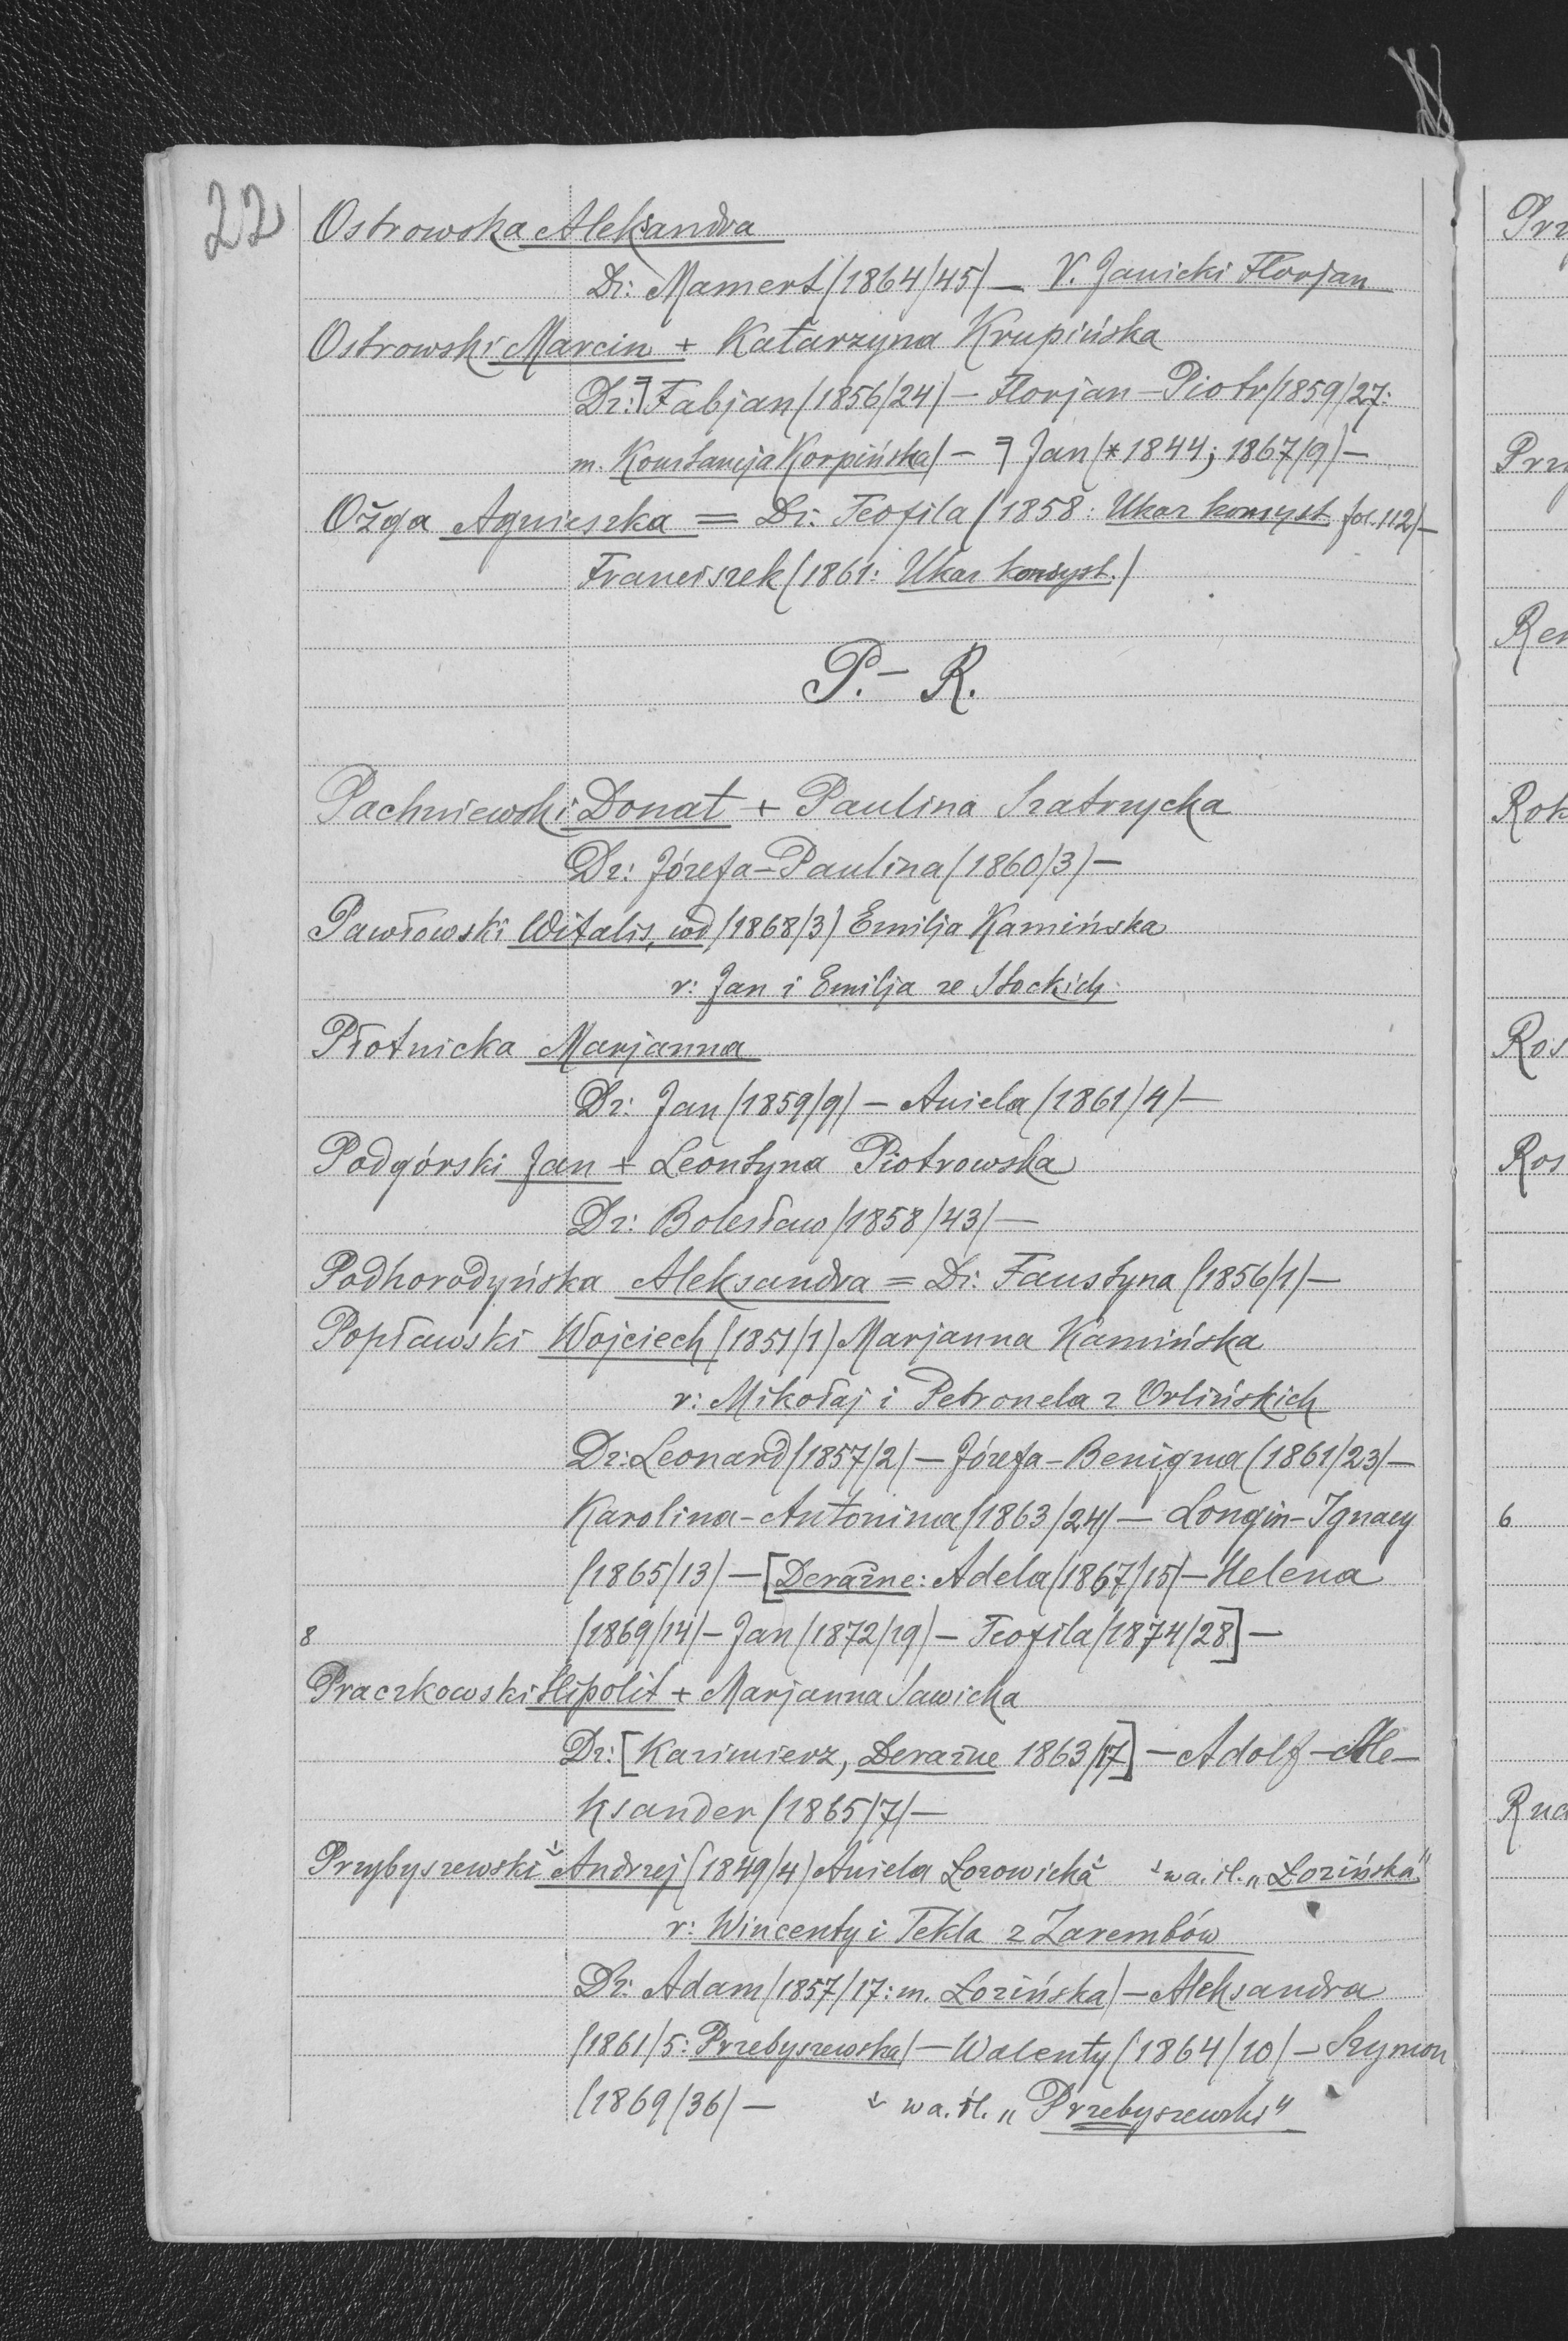 22
Ostrowska Aleksandra
Dz: Mamert /1864/45/ — V. Janicki Florjan
Ostrowski Marcin + Katarzyna Krupińska
Dz: Fabjan /1856/24/ — Florjan-Piotr /1859/27:
m. Konstancja Korpińska/ — Jan /*1844; 1867/9/ —
Ożga Agnieszka = Dz: Teofila /1858: Ukaz konsyst. fol. 112/ —
Franciszek /1861: Ukaz konsyst./
P. — R.
Pachniewski Donat + Paulina Szatrzycka
Dz: Józefa-Paulina /1860/3/ —
Pawłowski Witalis, wd /1868/3/ Emilja Kamińska
r: Jan i Emilja ze Stockich
Płotnicka Marjanna
Dz: Jan /1859/9/ — Aniela /1861/4/ —
Podgórski Jan + Leontyna Piotrowska
Dz: Bolesław /1858/43/ —
Podhorodyńska Aleksandra = Dz: Faustyna /1856/1/ —
Popławski Wojciech /1851/1/ Marjanna Kamińska
r: Mikołaj i Petronela z Orlińskich
Dz: Leonard /1857/2/ — Józefa-Benigma /1861/23/ —
Karolina-Antonina /1863/24/ — Longin-Ignacy
/1865/13/ — [Deraźne: Adela /1867/15/ — Helena
8 /1869/14/ — Jan /1872/19/ — Teofila /1874/28] —
Praczkowski Hipolit + Marjanna Sawicka
Dz: [Kazimierz, Deraźne 1863/17] — Adolf-Ale-
ksander /1865/7/ —
Przybyszewski Andrzej /1849/4/ Aniela Łozowicka wa. il. „Łozińska"
r: Wincenty i Tekla z Zarembów
Dz: Adam /1857/17: m. Łozińska/ — Aleksandra
/1861/5: Przebyszewska/ — Walenty /1864/10/ — Szymon
/1869/36/ — wa. il. „Przebyszewski"
Prz
Prz
Ren
Rok
Ros
Ros
6
Rud